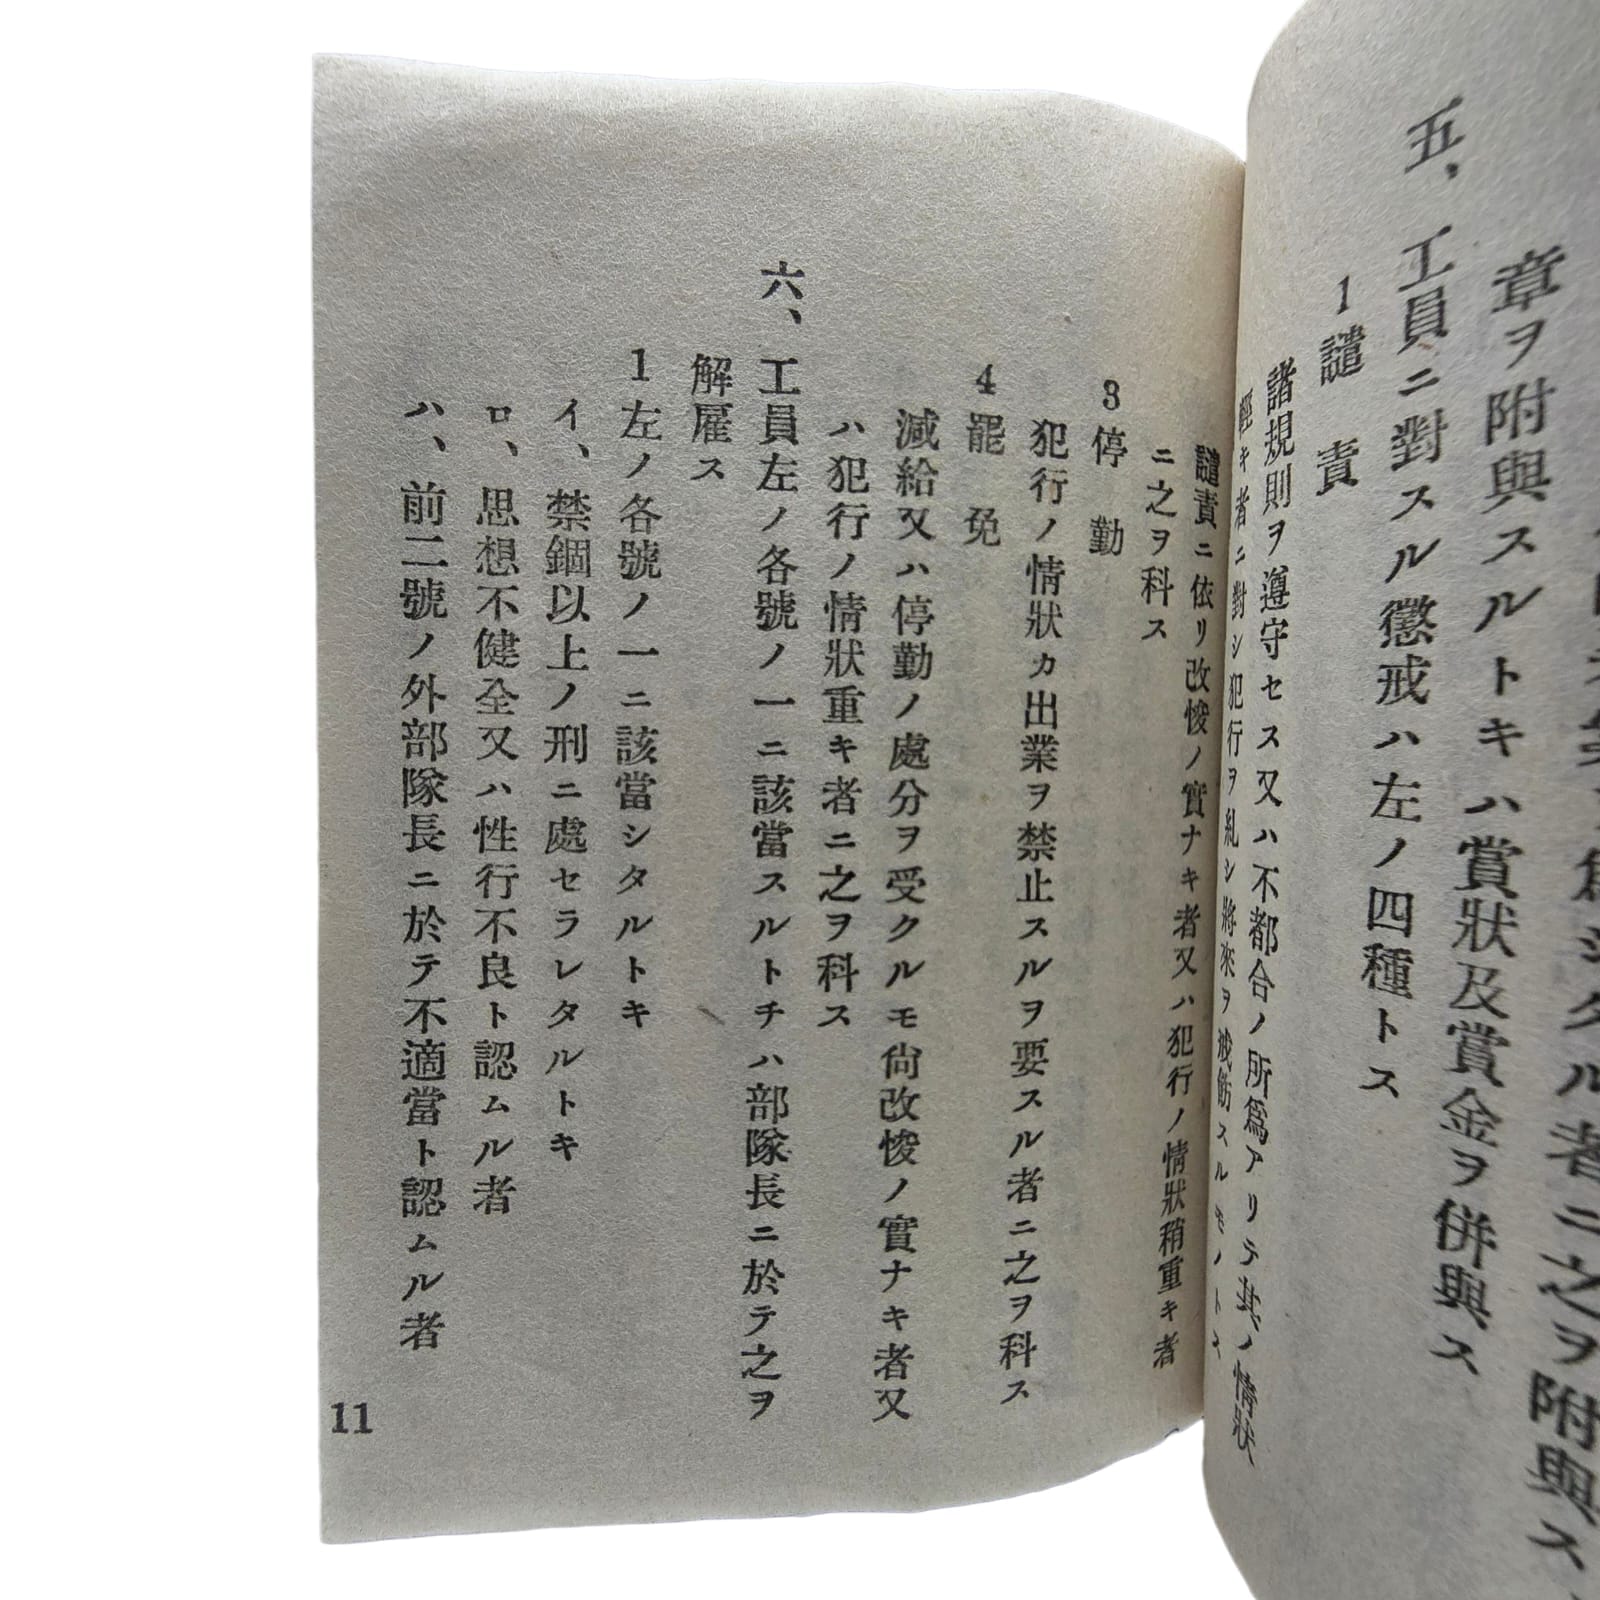 章ヲ附與スルトキハ賞狀及賞金ヲ併與ス
五、工員ニ對スル懲戒ハ左ノ四種トス
1譴責
諸規則ヲ遵守セス又ハ不都合ノ所爲アリテ其ノ情狀
輕キ者ニ對シ犯行ヲ糺シ將來ヲ戒飭スルモノトス
譴責ニ依リ改悛ノ實ナキ者又ハ犯行ノ情狀稍重キ者
ニ之ヲ科ス
3停勤
犯行ノ情狀カ出業ヲ禁止スルヲ要スル者ニ之ヲ科ス
4罷免
減給又ハ停勤ノ處分ヲ受クルモ尙改悛ノ實ナキ者又
ハ犯行ノ情狀重キ者ニ之ヲ科ス
六、工員左ノ各號ノ一ニ該當スルトチハ部隊長ニ於テ之ヲ
解雇ス
1左ノ各號ノ一ニ該當シタルトキ
イ、禁錮以上ノ刑ニ處セラレタルトキ
ロ、思想不健全又ハ性行不良ト認ムル者
ハ、前二號ノ外部隊長ニ於テ不適當ト認ムル者
11